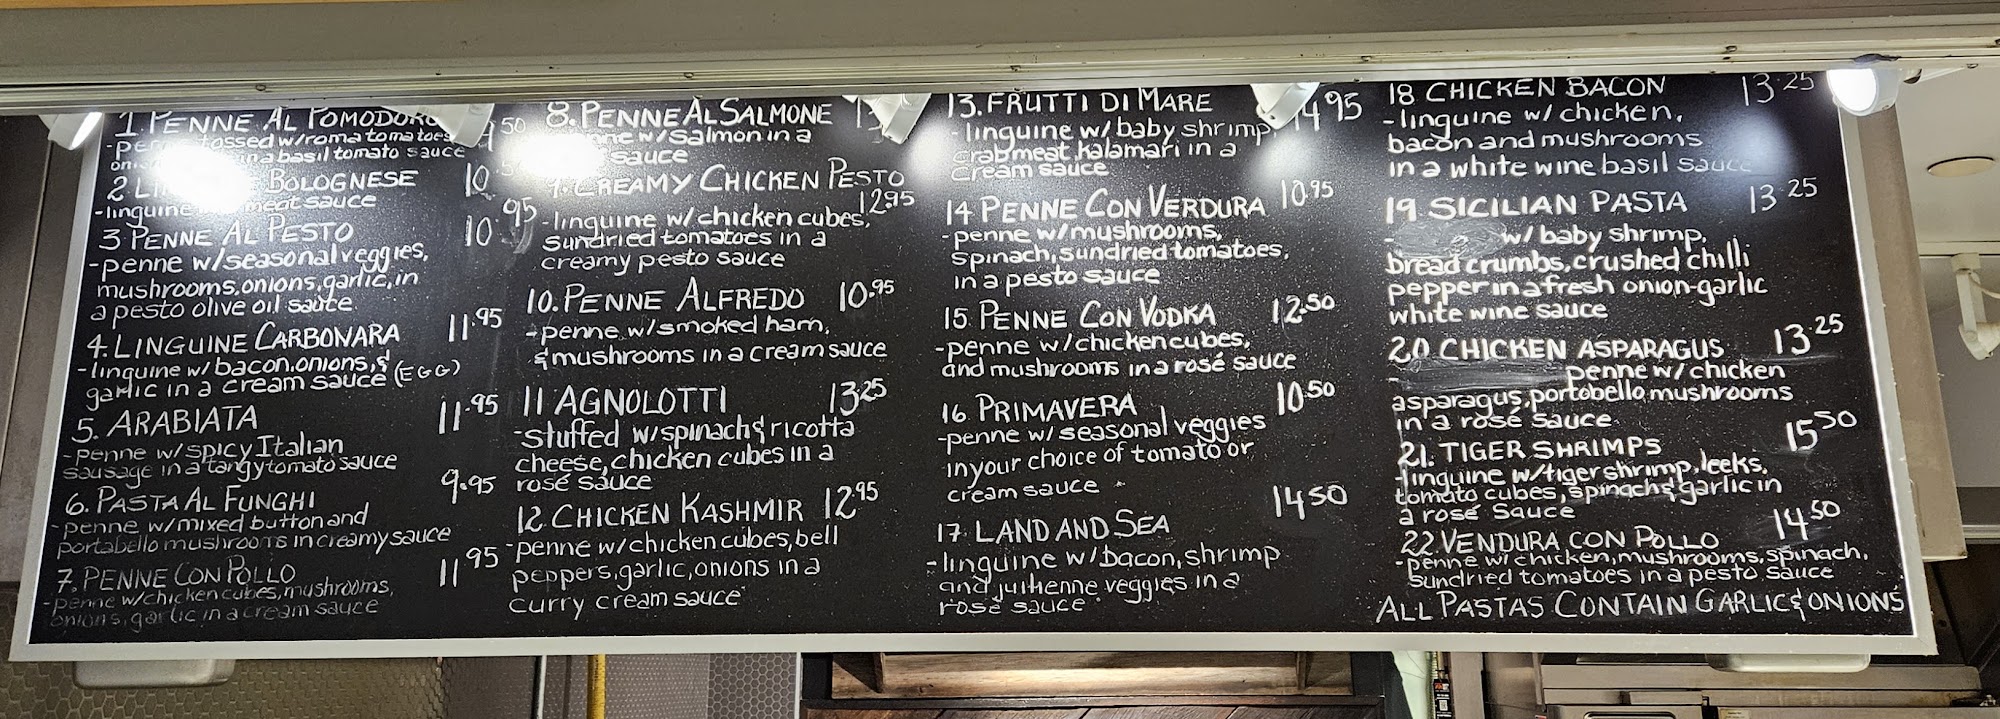 1. PENNE AL POMODORO 9.50
- tossed w/roma tomatoes
in a basil tomato sauce
2. BOLOGNESE 10.
- linguine meat sauce
3 PENNE AL PESTO 10.95
- penne w/seasonal veggies,
mushrooms, onions, garlic, in
a pesto olive oil saute
4. LINGUINE CARBONARA 11.95
- linguine w/bacon, onions, &
garlic in a cream sauce (EGG)
5. ARABIATA 11.95
- penne w/spicy Italian
sausage in a tangy tomato sauce
6. PASTA AL FUNGHI 9.95
- penne w/mixed button and
portabello mushrooms in creamy sauce
7. PENNE CON POLLO 11.95
- penne w/chicken cubes, mushrooms,
onions, garlic in a cream sauce
8. PENNE AL SALMONE
w/salmon in a
sauce
9. CREAMY CHICKEN PESTO
12.95
- linguine w/chicken cubes,
sundried tomatoes in a
creamy pesto sauce
10. PENNE ALFREDO 10.95
- penne w/smoked ham,
& mushrooms in a cream sauce
11 AGNOLOTTI 13.25
- stuffed w/spinach & ricotta
cheese, chicken cubes in a
rosé sauce
12. CHICKEN KASHMIR 12.95
- penne w/chicken cubes, bell
peppers, garlic, onions in a
curry cream sauce
13. FRUTTI DI MARE 14.95
- linguine w/baby shrimp,
crabmeat, kalamari in a
cream sauce
14 PENNE CON VERDURA 10.95
- penne w/mushrooms,
spinach, sundried tomatoes,
in a pesto sauce
15. PENNE CON VODKA 12.50
- penne w/chicken cubes,
and mushrooms in a rosé sauce
16 PRIMAVERA 10.50
- penne w/seasonal veggies
in your choice of tomato or
cream sauce
17. LAND AND SEA 14.50
- linguine w/bacon, shrimp
and julienne veggies in a
rosé sauce
18 CHICKEN BACON 13.25
- linguine w/chicken,
bacon and mushrooms
in a white wine basil sauce
19. SICILIAN PASTA 13.25
- w/baby shrimp,
bread crumbs, crushed chilli
pepper in a fresh onion-garlic
white wine sauce
20 CHICKEN ASPARAGUS 13.25
- penne w/chicken
asparagus, portobello mushrooms
in a rosé sauce
21. TIGER SHRIMPS 15.50
- linguine w/tiger shrimp, leeks,
tomato cubes, spinach & garlic in
a rosé sauce
22. VENDURA CON POLLO 14.50
- penne w/chicken, mushrooms, spinach,
sundried tomatoes in a pesto sauce
ALL PASTAS CONTAIN GARLIC & ONIONS